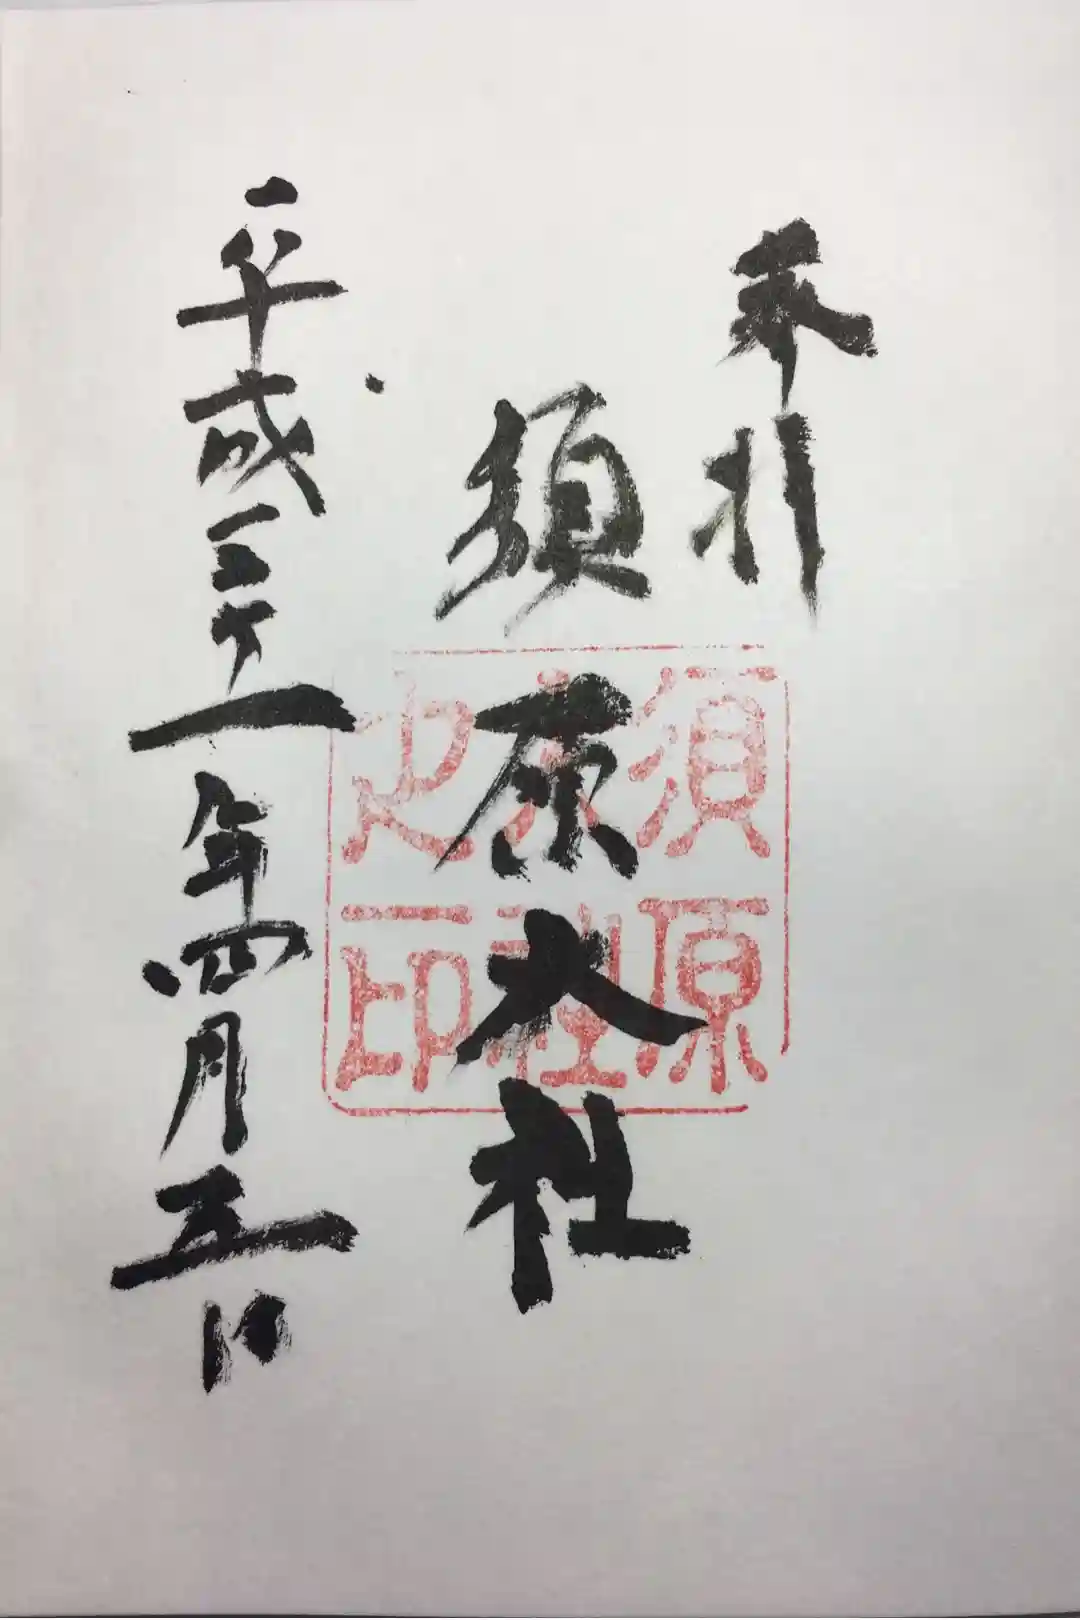 奉拝
須原大社
平成三十一年四月五日
須原
大社
之印